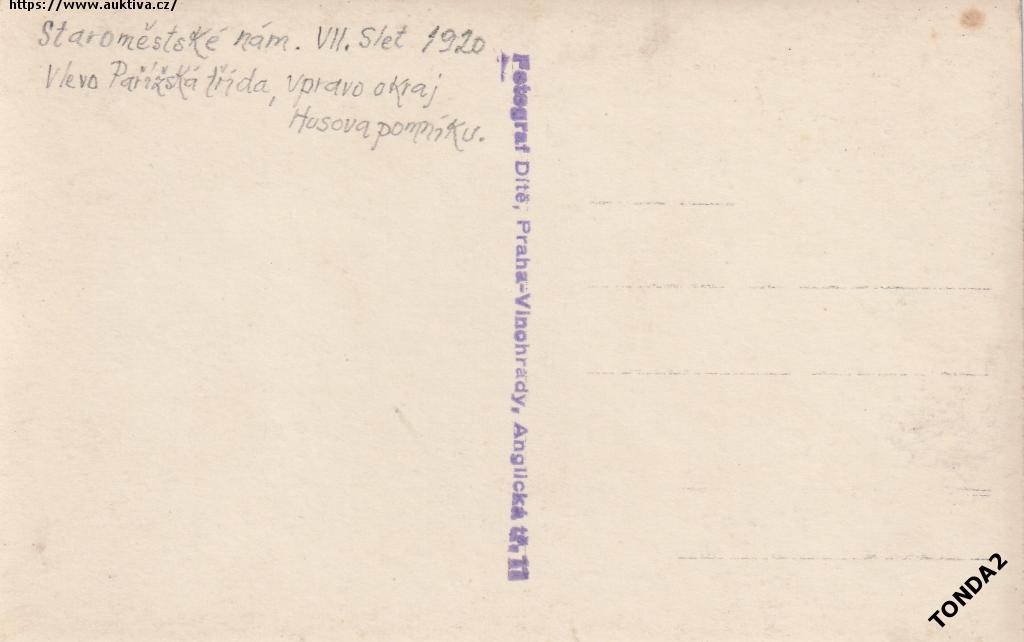 https://www.auktiva.cz/
Staroměstské nám. VII. Slet 1920
Vlevo Pařížská třída, vpravo okraj
Husova pomníku.
Fotograf Dítě, Praha-Vinohrady, Anglická tř. 11
TONDA2